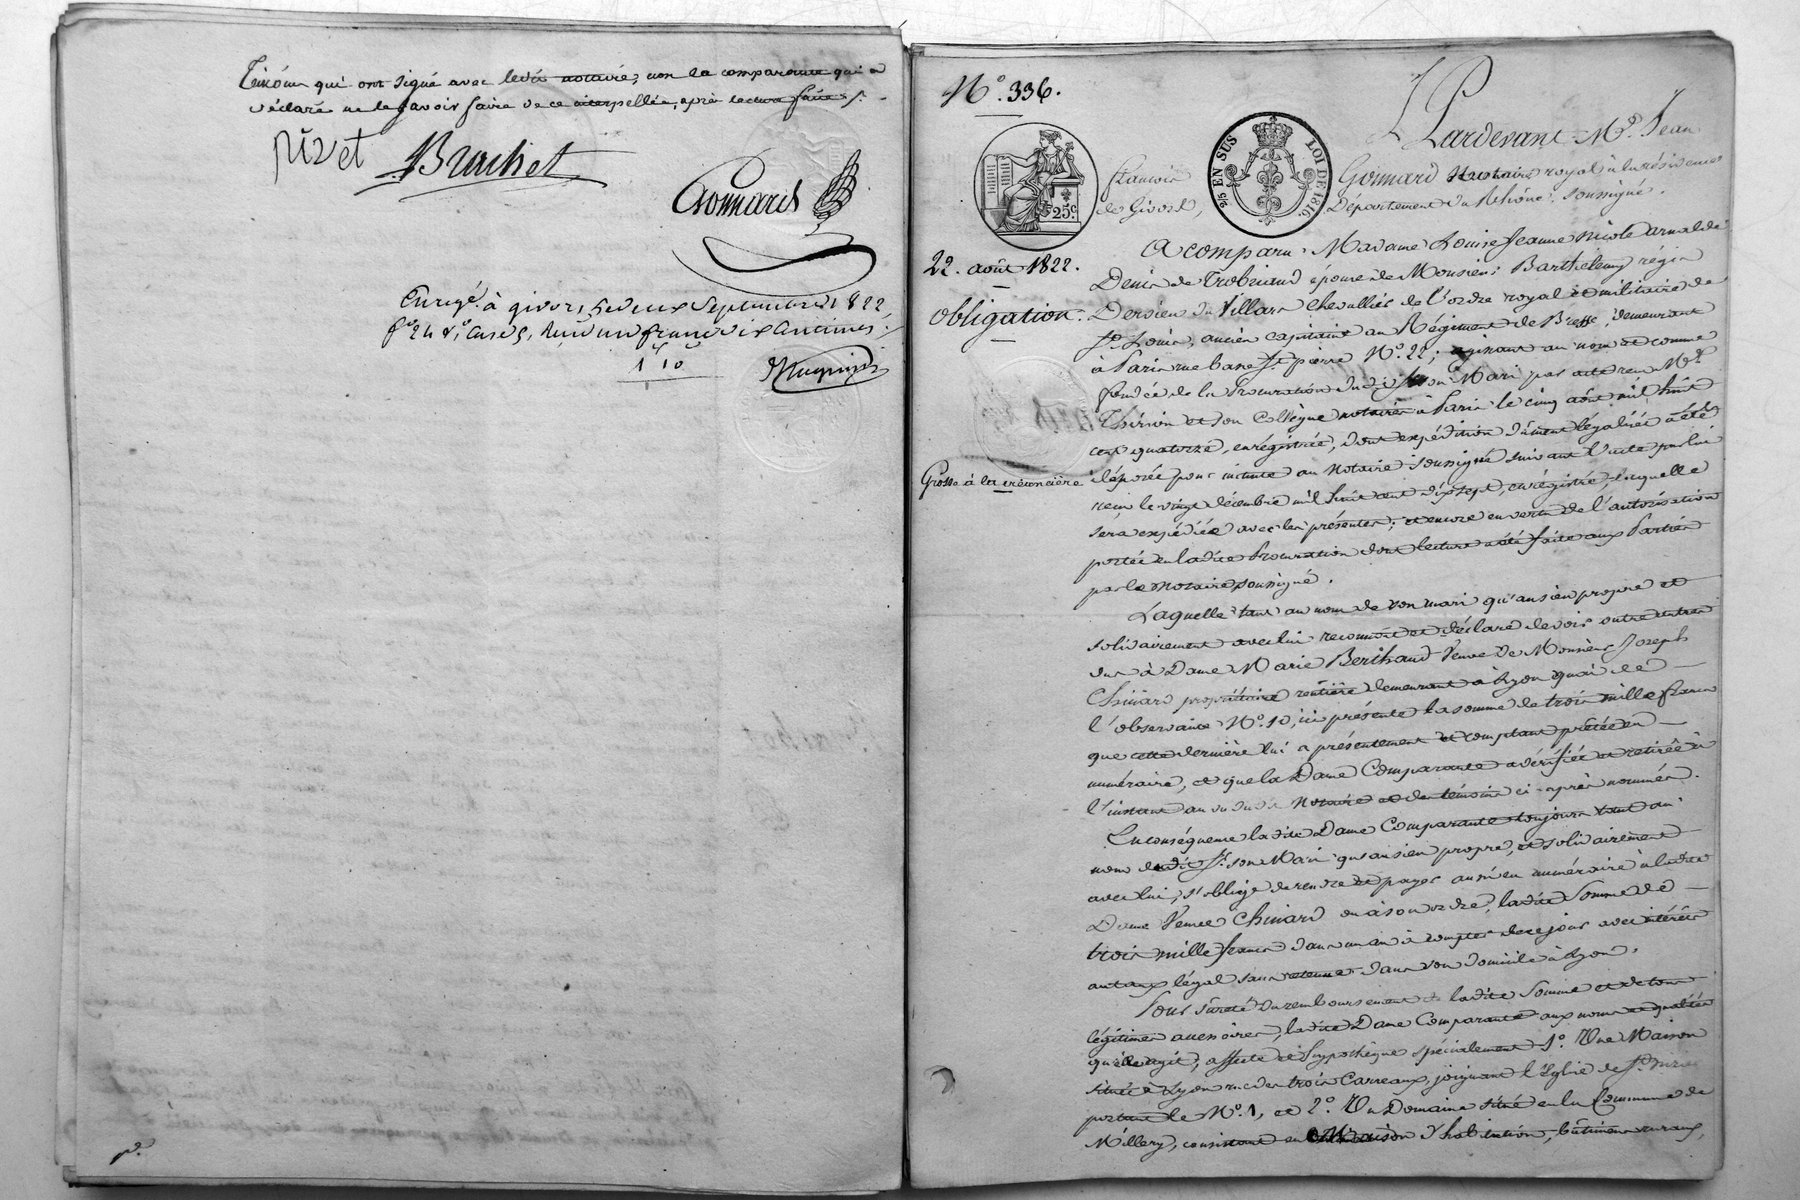 témoins qui ont signé avec le dit notaire, non la comparante qui a
déclaré ne le savoir faire de ce interpellée, après lecture faite.
pivet Bruchet
Goinnard
Enregé. à givors, le deux Septembre 1822,
fo. 24 Vo. Case 5, Reçu un franc dix Centimes.
1 10
No. 336.
Pardevant Me. Jean
françois Goinnard Notaire royal à la résidence
de Givors, Département du Rhône, soussigné.
25c
2/5 EN SUS LOI DE 1816.
22. août 1822.
Obligation.
A comparu Madame Louise Jeanne Nicole Arnalde
Denis de Trobriand épouse de Monsieur Barthelemy régis
Dervieu du Villars Chevallier de l'ordre royal et militaire de
St. Louis, ancien capitaine au Régiment de Bresse, demeurant
à Paris rue basse St. pierre No. 22; agissant au nom et comme
fondée de la Procuration du dit Sr. son Mari par acte reçu Me.
Thirion et son Collègue notaires à Paris le cinq août mil huit
cent quatorze, enrégistrée, dont expédition dûment légalisée a été
Grosse à la créancière
déposée pour minute au notaire soussigné suivant l'acte par lui
reçu le vingt décembre mil huit cent dix sept, enrégistré, laquelle
sera expédiée avec les présentes; et encore en vertu de l'autorisation
portée en la dite Procuration dont lecture a été faite aux Parties
par le Notaire soussigné.
Laquelle tant au nom de son mari qu'au sien propre et
solidairement avec lui reconnoit et déclare devoir
à Dame Marie Berthaud Veuve de Monsieur Joseph
Chinard propriétaire rentière demeurant à Lyon quai de
l'observance No. 10, ici présente la somme de trois mille francs
que cette dernière lui a présentement et comptant prêtée en
numéraire, et que la Dame Comparante a vérifiée et retirée à
l'instant au vu du dit Notaire et des témoins ci-après nommés.
En conséquence la dite Dame Comparante toujours tant au
nom du dit Sr. son Mari qu'au sien propre, et solidairement
avec lui, s'oblige de rendre et payer aussi en numéraire à la dite
Dame Veuve Chinard ou à son ordre, la dite Somme de
trois mille francs dans un an à compter de ce jour avec intérêts
au taux légal sans retenue dans son domicile à Lyon.
Pour sûreté du remboursement de la dite Somme et de tous
légitimes accessoires, la dite Dame Comparante aux noms et qualités
qu'elle agit, affecte et hypothèque spécialement 1o. Une Maison
située à Lyon rue des trois Carreaux, joignant l'Eglise de St. Nizier
portant le No. 1, et 2o. Un Domaine situé en la Commune de
Millery, consistant en Maison d'habitation, bâtimens ruraux,